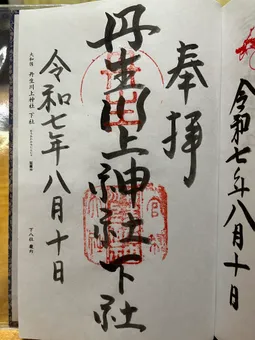 奉拝
丹生川上神社下社
令和七年八月十日
大和国 丹生川上神社 下社
令和七年八月十日